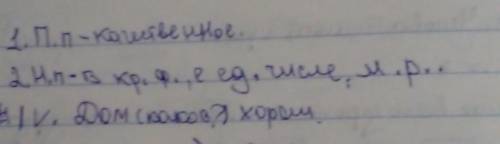 1. П.п - качественное.
2 Н.п - в кр. ф., в ед. числе, м. р..
IV. Дом (каков?) хорош.